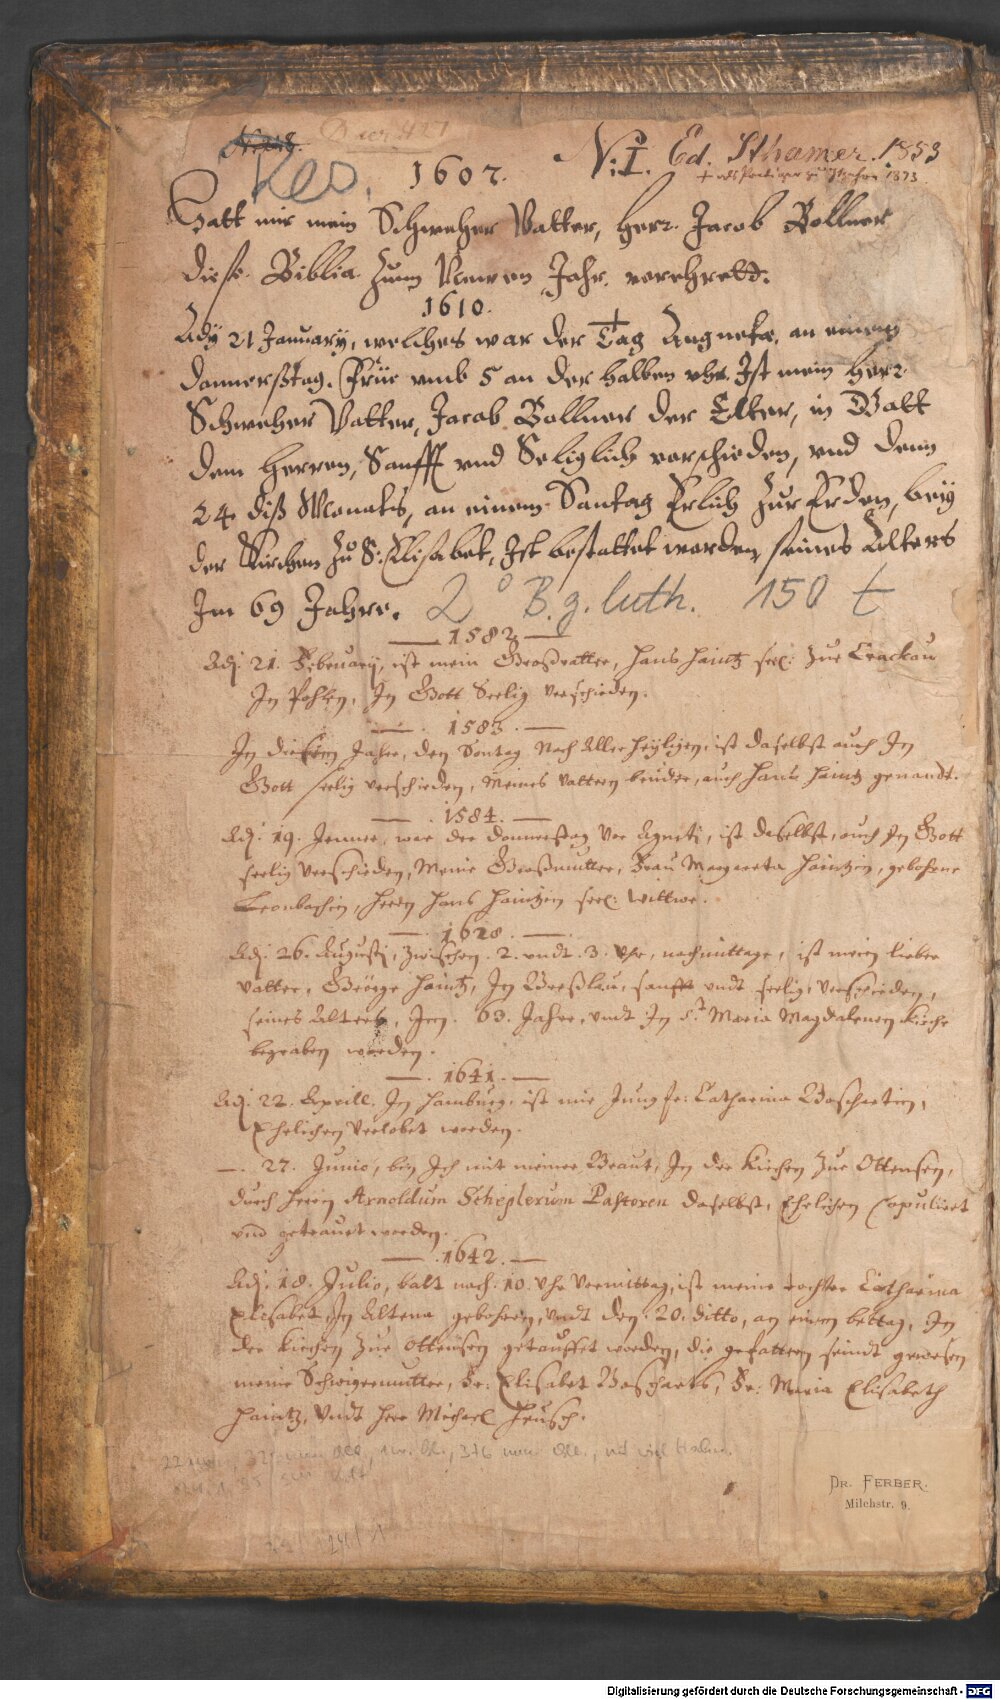 N: I. Ed. Sthamer. 1853
1607.
Hatt mir mein Schweher Vatter, herr. Jacob Bollner
diese Biblia zum Newen Jahr. verehrett.
1610.
Ady 21 January, welches war der Tag Angnete, an einem
donnerstag. Früe vmb 5 an der halben vhr. Ist mein herr
Schweher Vatter, Jacob Bollner der Elter, in Gott
dem herren, Sanfft vnd Seliglich verschieden, vnd denn
24 diß Monats, an einem Santag Erlich zur Erden, beÿ
der Kirchen Zů S: Elisabet, Ist bestattet worden, seines Alters
Im 69 Jahre. 2° B. g. luth. 150 t
1582
Adj. 21. Februarÿ, ist mein Großvatter, Hans Haintz seel: zue Crackau
In Pohlen, In Gott Seelig verschieden.
1583.
In diesem Jahre, den Sontag Nach Allerheÿligen, ist daselbst auch In
Gott seelig verschieden, Meines Vattern bruder, auch Hans Haintz genandt.
1584.
Adj. 19. Jenner, war der Donnerstag Vor Agneti, ist daselbst, auch In Gott
seelig Verschieden, Meine Großmutter, Frau Margareta Haintzin, gebohrne
Cronbachin, Herrn Hans Haintzen seel: wittwe.
1628.
Adj. 26. Augusti, zwischen. 2. vndt. 3. Vhr, nachmittage, ist mein lieber
Vatter, Geörge Haintz, In Breßlau, sanfft vndt seelig, Verschieden,
seines Alters, Im. 63. Jahre, vndt In St. Maria Magdalenen Kirche
begraben worden.
1641.
Adj. 22. Aprill. In Hamburg, ist mir Jungfr: Catharina Boschartin,
Ehelichen Verlobet worden.
27. Junio, bin Ich mit meiner Braut, In der Kirchen zue Ottensen,
durch Herrn Arnoldum Scheplerum Pastoren daselbst, Ehelichen Copuliert
vnd getrauet worden.
1642.
Adj. 18. Julio, balt nach. 10. Vhr Vormittag, ist meine tochter Catharina
Elisabet, In Altena gebohren, vndt den. 20. ditto, an einem bettag, In
der Kirchen zue Ottensen getauffet worden, die gefattern seindt gewesen
meine Schwigermutter, Fr: Elisabet Boscharts, Fr: Maria Elisabeth
Haintz, Vndt Herr Michael Heusch.
DR. FERBER.
Milchstr. 9.
Digitalisierung gefördert durch die Deutsche Forschungsgemeinschaft - DFG